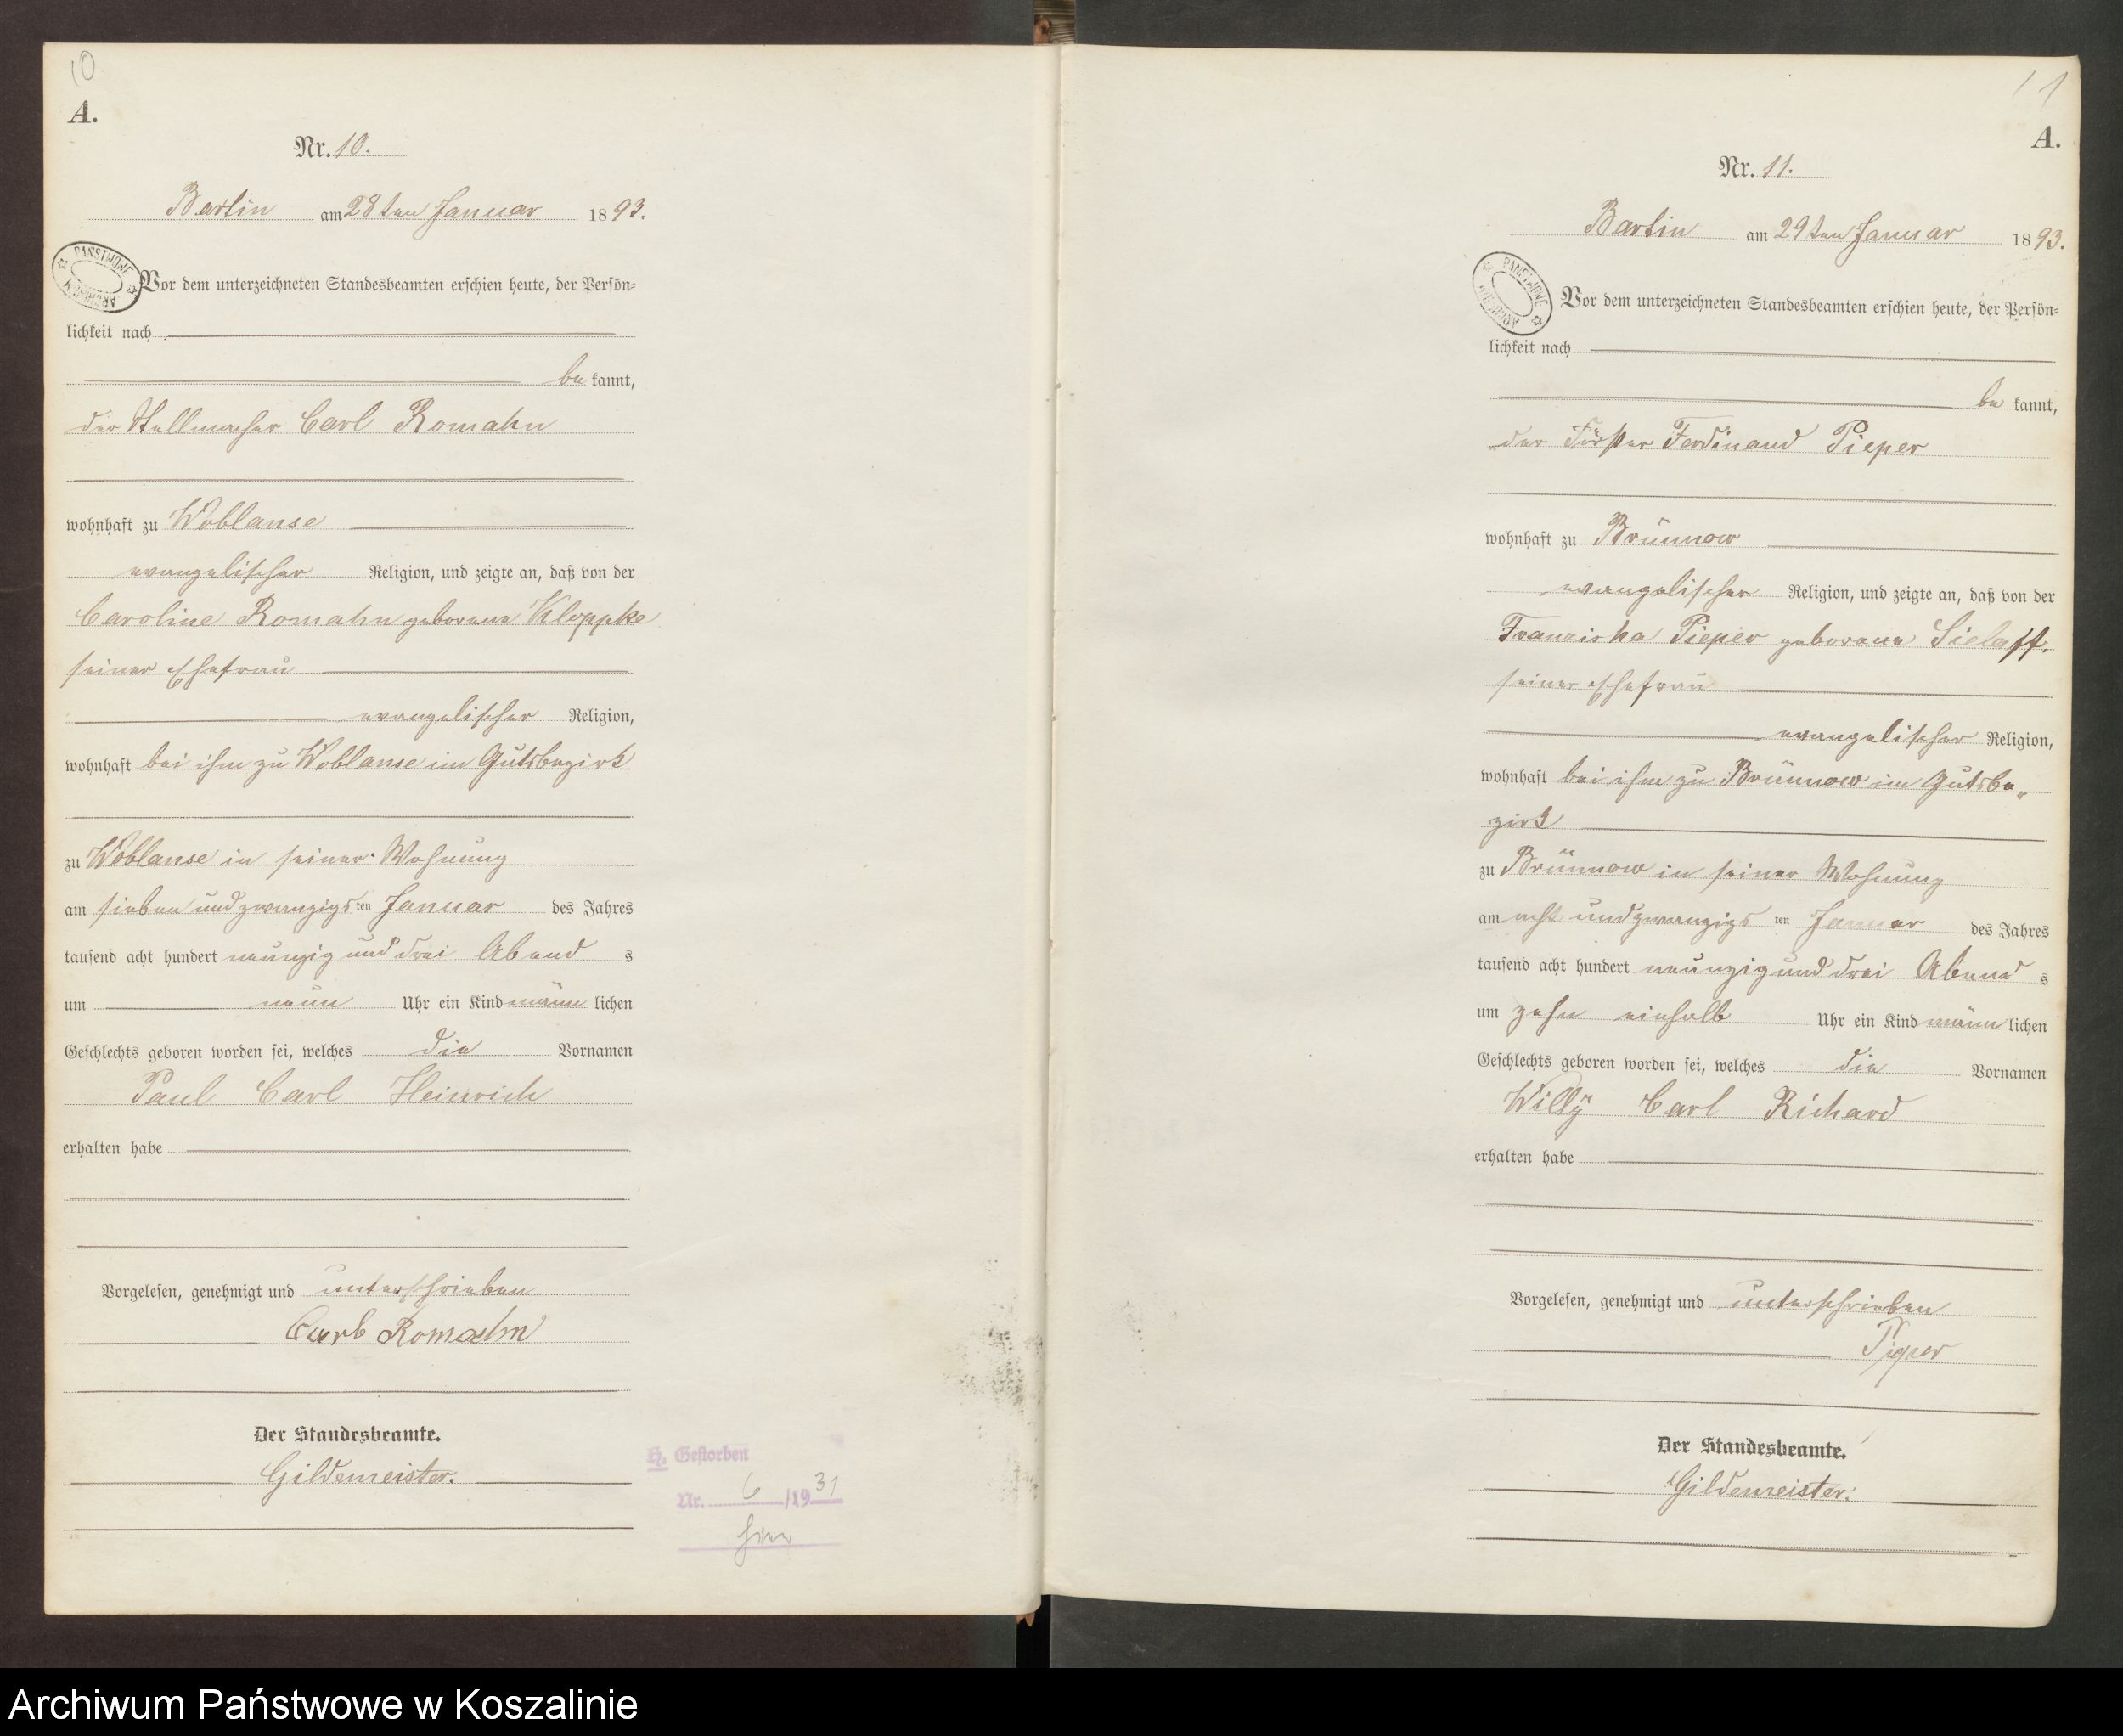 10
A.
Nr. 10.
Bartin am 28ten Januar 1893.
PAŃSTWOWE
ARCHIWUM
Vor dem unterzeichneten Standesbeamten erschien heute, der Persön-
lichkeit nach
be kannt,
der Stellmacher Carl Romahn
wohnhaft zu Woblanse
evangelischer Religion, und zeigte an, daß von der
Caroline Romahn geborene Kloppke
seiner Ehefrau
evangelischer Religion,
wohnhaft bei ihm zu Woblanse im Gutsbezirk
zu Woblanse in seiner Wohnung
am sieben und zwanzigsten Januar des Jahres
tausend acht hundert neunzig und drei Abend s
um neun Uhr ein Kind männ lichen
Geschlechts geboren worden sei, welches die Vornamen
Paul Carl Heinrich
erhalten habe
Vorgelesen, genehmigt und unterschrieben
Carl Romahn
Der Standesbeamte.
Gildemeister.
H. Gestorben
Nr. 6 /1931
hier
11
A.
Nr. 11.
Bartin am 29ten Januar 1893.
PAŃSTWOWE
ARCHIWUM
Vor dem unterzeichneten Standesbeamten erschien heute, der Persön-
lichkeit nach
be kannt,
der Förster Ferdinand Pieper
wohnhaft zu Brünnow
evangelischer Religion, und zeigte an, daß von der
Franziska Pieper geborene Sielaff.
seiner Ehefrau
evangelischer Religion,
wohnhaft bei ihm zu Brünnow im Gutsbe„
zirk
zu Brünnow in seiner Wohnung
am acht und zwanzigsten Januar des Jahres
tausend acht hundert neunzig und drei Abend s
um zehn einhalb Uhr ein Kind männ lichen
Geschlechts geboren worden sei, welches die Vornamen
Willÿ Carl Richard
erhalten habe
Vorgelesen, genehmigt und unterschrieben
Pieper
Der Standesbeamte.
Gildemeister.
Archiwum Państwowe w Koszalinie